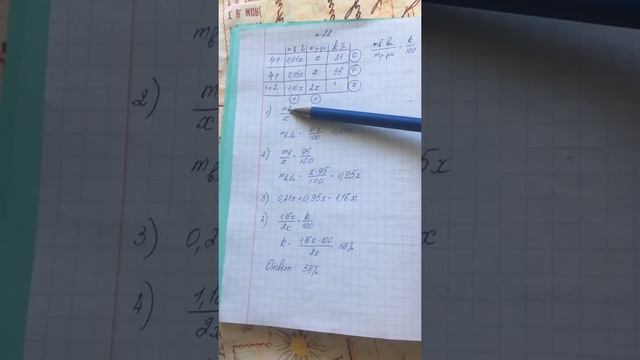 № 22
mв. ва mр-ра k %
1р-р 0,21x x 21
2р-р 0,95x x 95
1+2 1,16x 2x ?
mв. ва / mр.ра = k / 100
1) mв / x
mв. ва = / 100
2) mв / x = 95 / 100
mв. ва = x·95 / 100 = 0,95x
3) 0,21x + 0,95x = 1,16x
4) 1,16x / 2x = k / 100
k = 1,16x·100 / 2x = 58%
Ответ: 58%